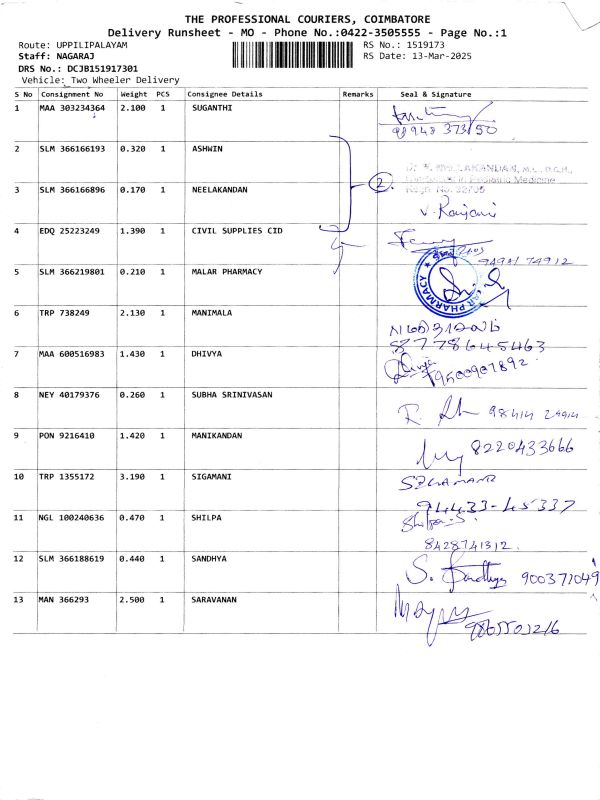 THE PROFESSIONAL COURIERS, COIMBATORE
Delivery Runsheet - MO - Phone No.:0422-3505555 - Page No.:1
Route: UPPILIPALAYAM RS No.: 1519173
Staff: NAGARAJ RS Date: 13-Mar-2025
DRS No.: DCJB151917301
Vehicle: Two Wheeler Delivery
S No Consignment No Weight PCS Consignee Details Remarks Seal & Signature
1 MAA 303234364 2.100 1 SUGANTHI
98948 37350
2 SLM 366166193 0.320 1 ASHWIN
2
3 SLM 366166896 0.170 1 NEELAKANDAN
V. Ranjani
4 EDQ 25223249 1.390 1 CIVIL SUPPLIES CID
5 SLM 366219801 0.210 1 MALAR PHARMACY
PHARMACY
6 TRP 738249 2.130 1 MANIMALA
8778645463
7 MAA 600516983 1.430 1 DHIVYA
9500907892
8 NEY 40179376 0.260 1 SUBHA SRINIVASAN
9 PON 9216410 1.420 1 MANIKANDAN
8220433666
10 TRP 1355172 3.190 1 SIGAMANI
94433-45337
11 NGL 100240636 0.470 1 SHILPA
Shilpa.S
8428741312.
12 SLM 366188619 0.440 1 SANDHYA
S. Sandhya 900371049
13 MAN 366293 2.500 1 SARAVANAN